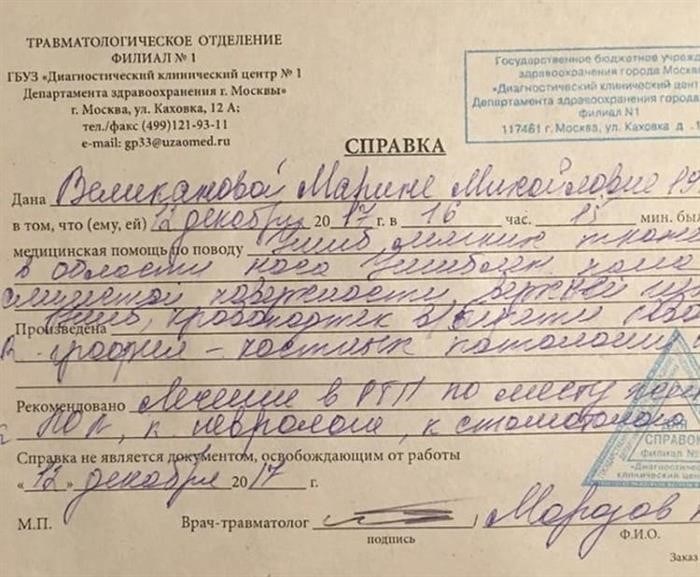 ТРАВМАТОЛОГИЧЕСКОЕ ОТДЕЛЕНИЕ
ФИЛИАЛ № 1
ГБУЗ «Диагностический клинический центр № 1
Департамента здравоохранения г. Москвы»
г. Москва, ул. Каховка, 12 А;
тел./факс (499)121-93-11
e-mail: gp33@uzaomed.ru
Государственное бюджетное учрежд
здравоохранения города Москвы
«Диагностический клинический цент
Департамента здравоохранения города
филиал №1
117461 г. Москва, ул. Каховка д
СПРАВКА
Дана Великановой Марине Михайловне 19
в том, что (ему, ей) 12 декабря 2017 г. в 16 час. 15 мин. был
медицинская помощь по поводу Ушиб мягких ткан
в области носа Ушибленная рана
слизистой поверхности верхней
Ушиб, кровоподтек в области
Произведена
графия – костных патологии
Рекомендовано Лечение в РТП по месту
к неврологу, к стоматологу
СПРАВОК
филиал №
«Диагностический
клинический цен
Справка не является документом, освобождающим от работы
«12» декабря 2017 г.
М.П. Врач-травматолог Морозов
подпись Ф.И.О.
Заказ